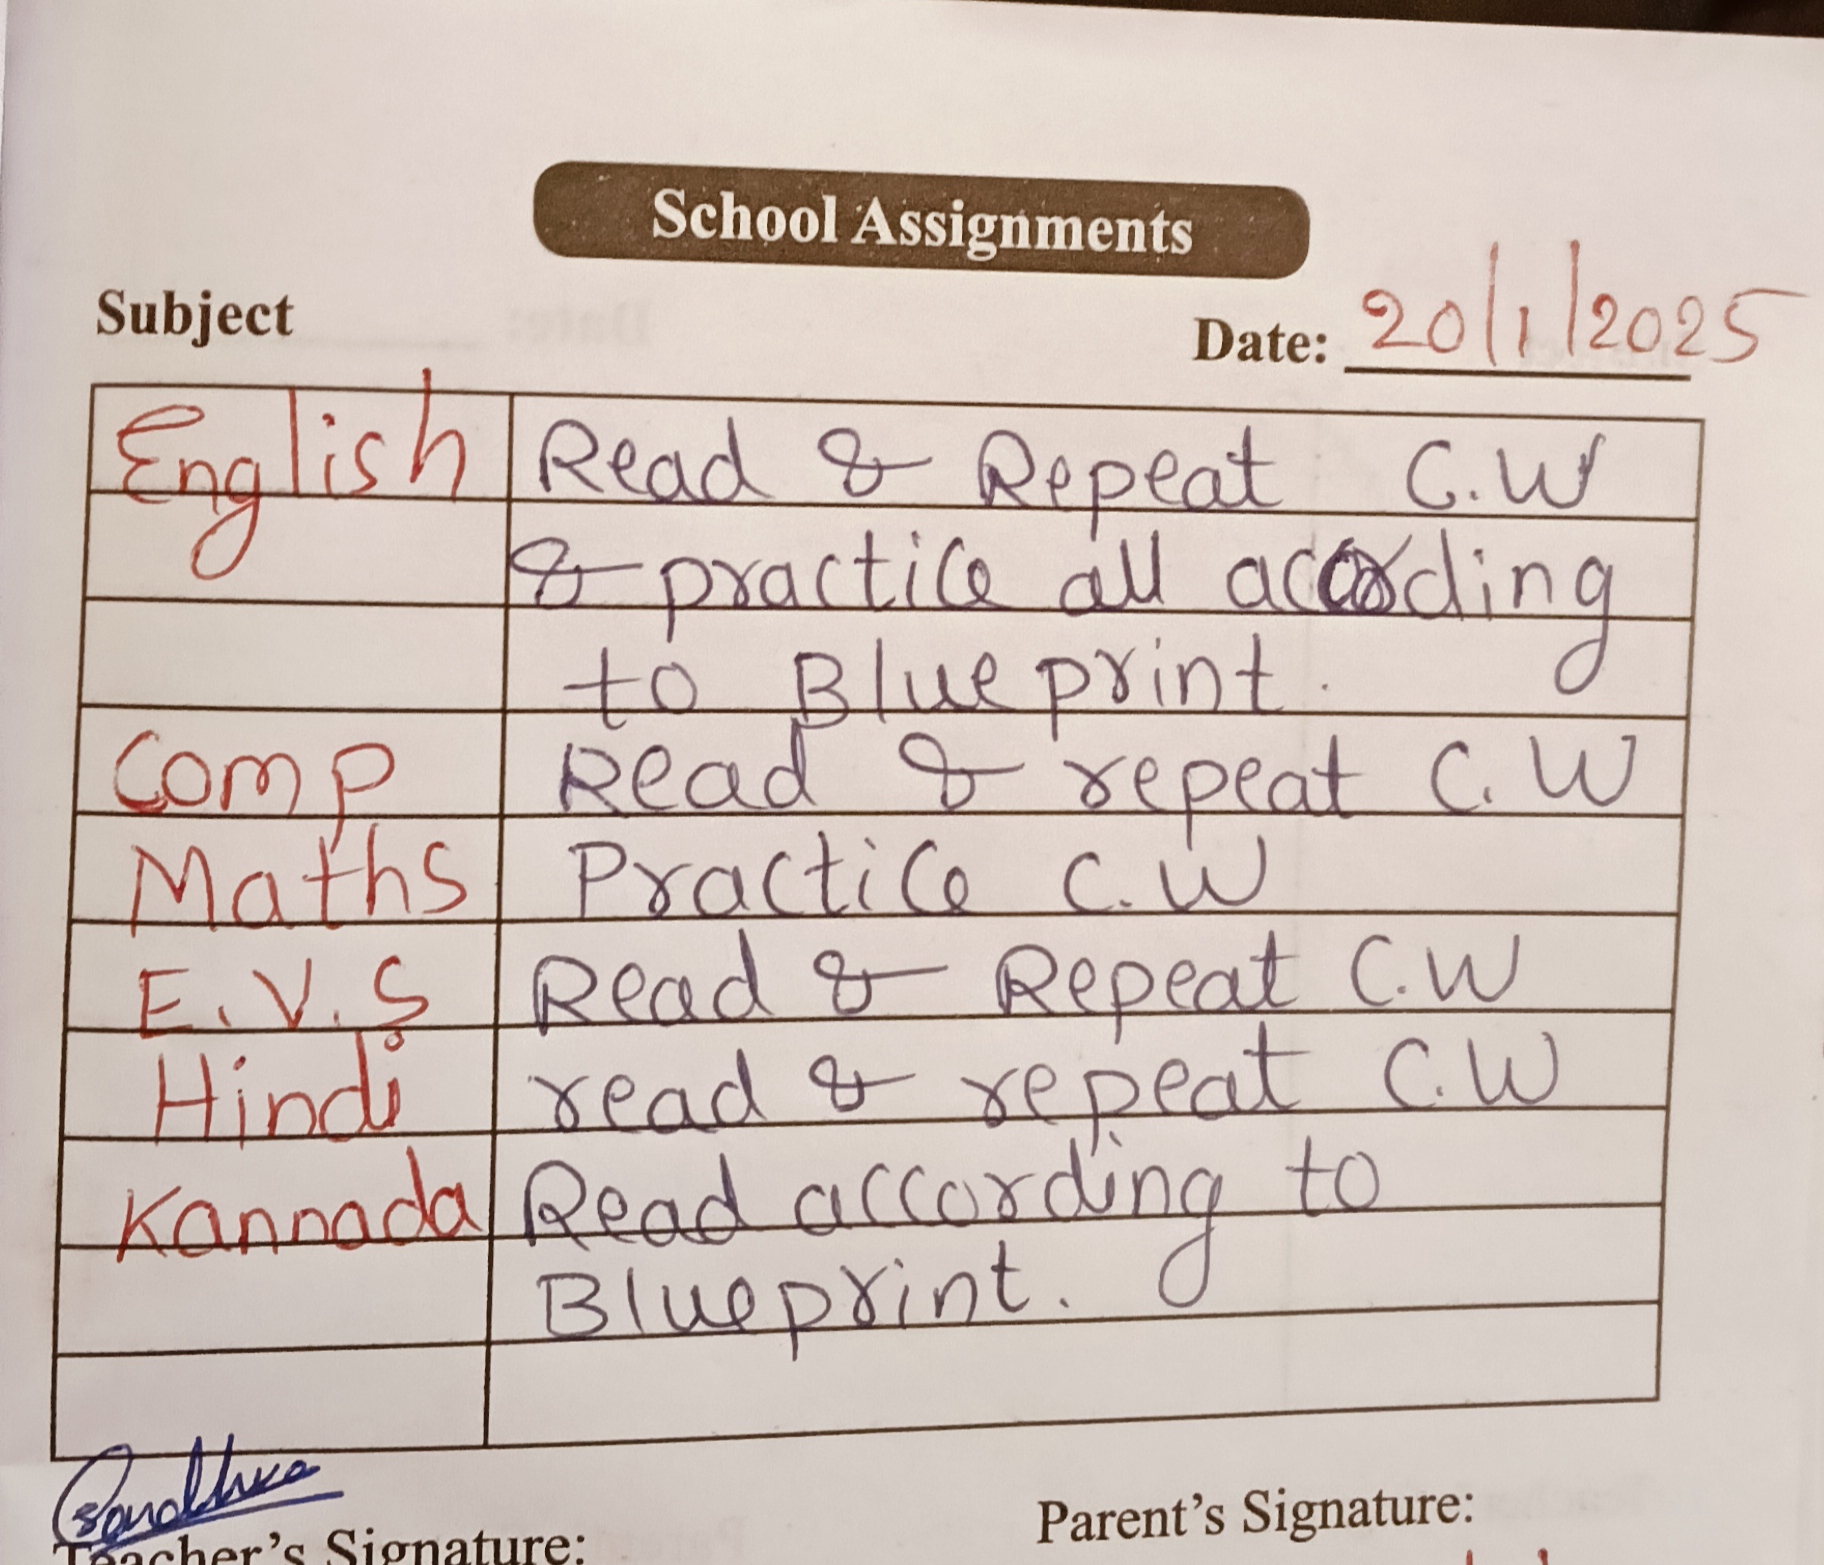 School Assignments
Subject
Date: 20/1/2025
English Read & Repeat C.W
& practice all according
to Blueprint.
Comp Read & repeat C.W
Maths Practice C.W
E.V.S Read & Repeat C.W
Hindi read & repeat C.W
Kannada Read according to
Blueprint.
Teacher's Signature:
Parent's Signature: